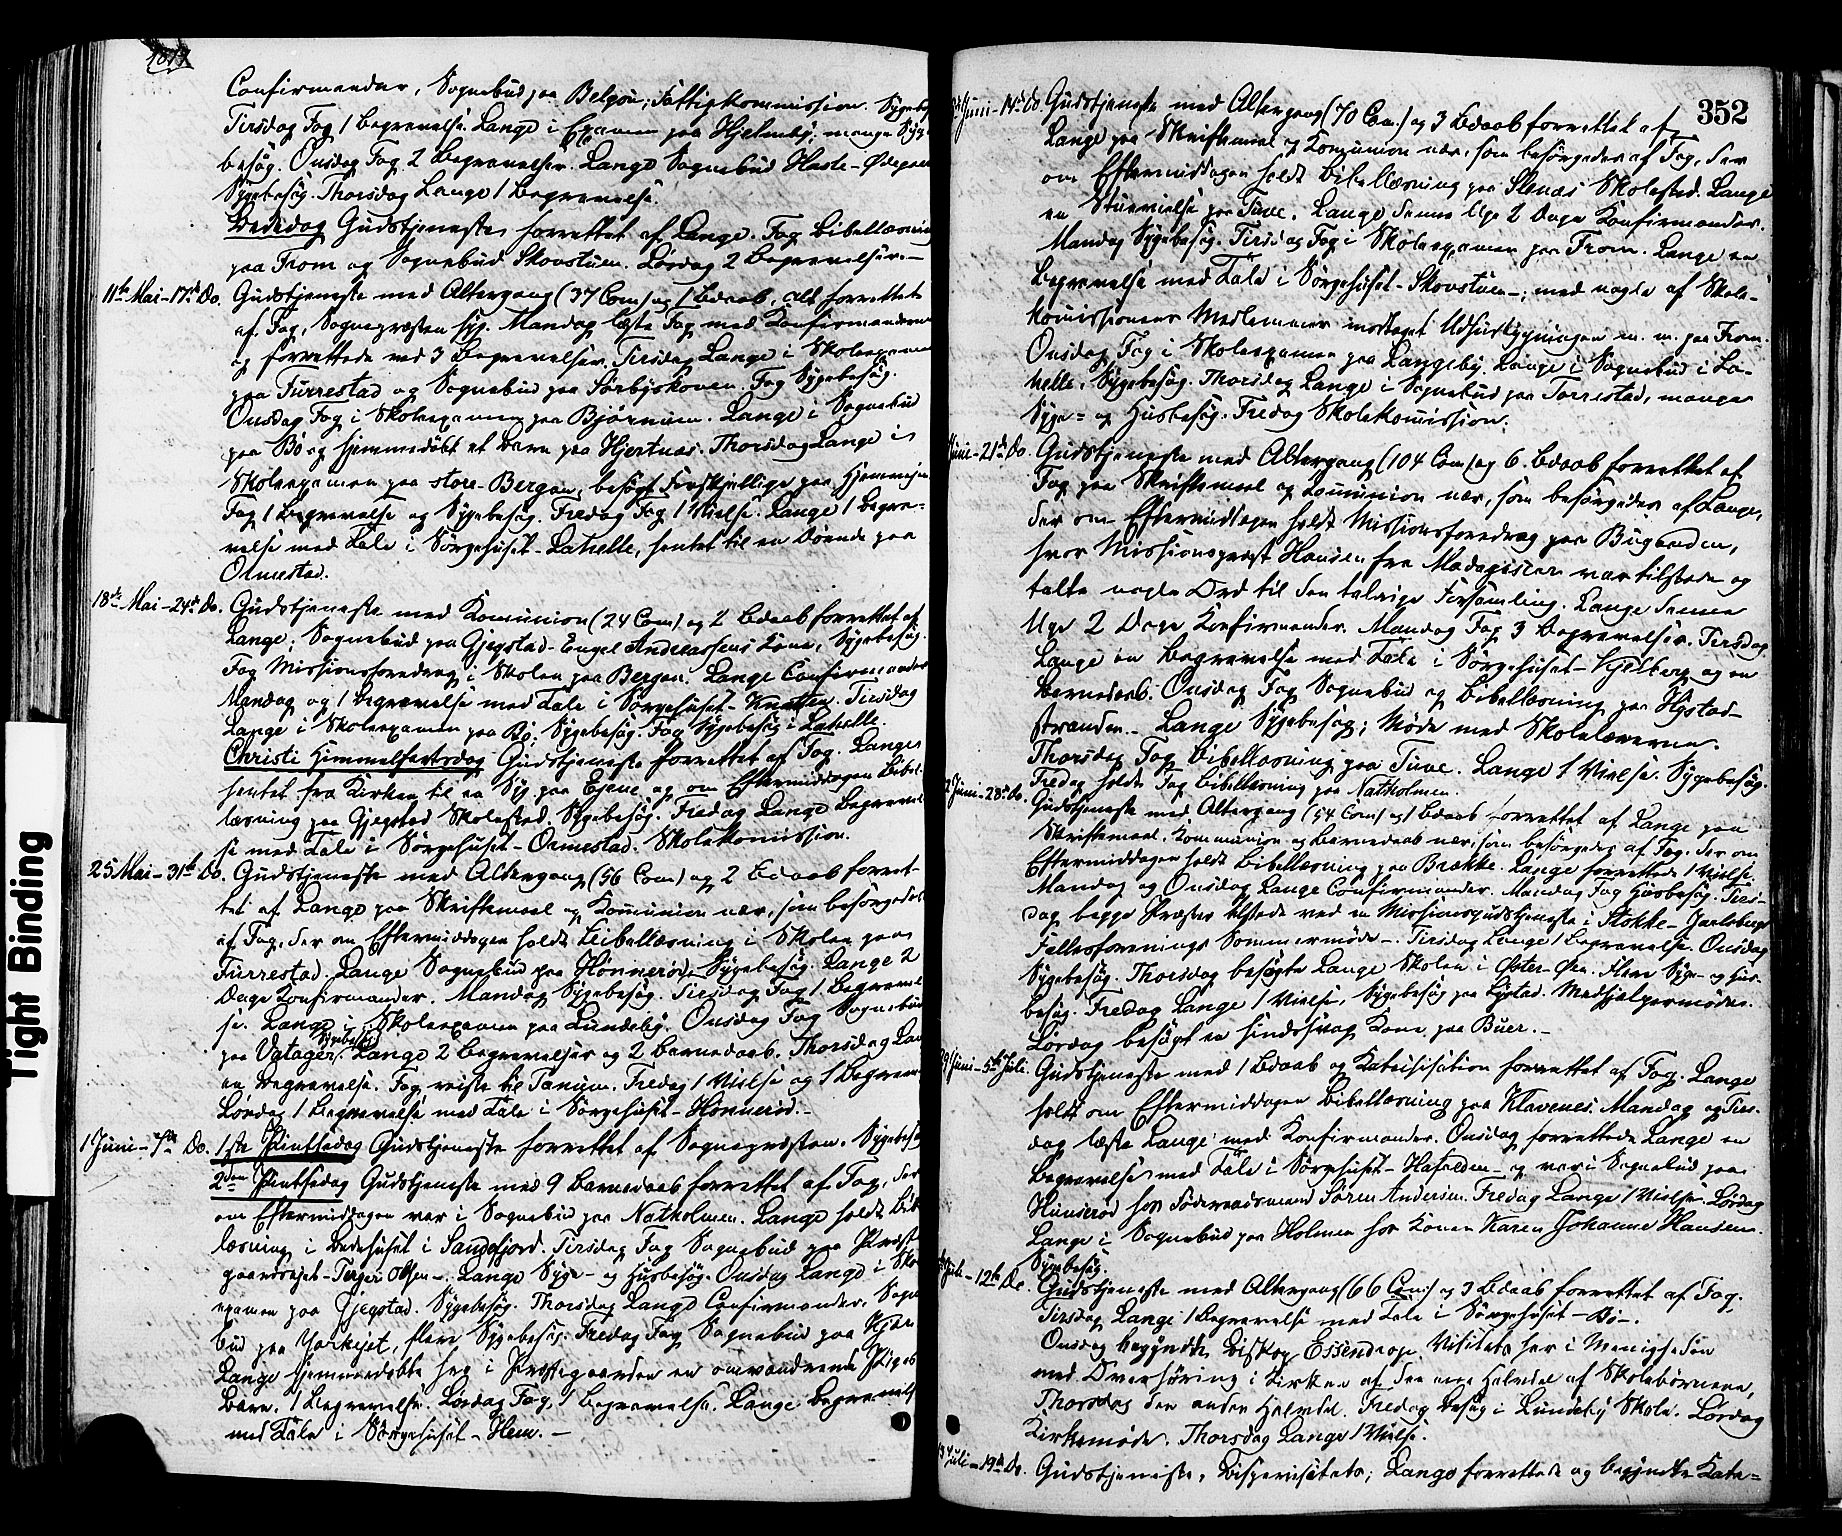 Confirmander, Sognebud paa Belgøn; Fattigkommission. Sygebesøg
Tirsdag Fog 1 Begravelse. Lange i Examen paa Hjelmeby. mange Syge
besøg. Onsdag Fog 2 Begravelser. Lange Sognebud Hasle-
Sygebesøg. Thorsdag Lange 1 Begravelse.
Bededag Gudstjeneste forrettet af Lange. Fog Bibellæsning
paa From og Sognebud Skovstuen. Lørdag 2 Begravelser.-
11te Mai-17de Do. Gudstjeneste med Altergang (37 Com) og 1 Bdaab, alt forrettet
af Fog, Sognepræsten syg. Mandag læste Fog med Konfirmanderne
og forrettede ved 3 Begravelser. Tirsdag Lange i Skoleexamen
paa Furrestad og Sognebud paa Sørbyskoven. Fog Sygebesøg.
Onsdag Fog i Skoleexamen paa Bjørnum. Lange i Sognebud
paa Bø og hjemmedøbt et Barn paa Hjertnæs. Thorsdag Lange i
Skoleexamen paa store-Bergan, besøgt Forskjellige paa Hjemveien
Fog 1 Begravelse og Sygebesøg. Fredag Fog 1 Vielse. Lange 1 Begra-
velse med Tale i Sørgehuset-Lahelle, hentet til en Døende paa
Ormestad.
18de Mai-24de Do. Gudstjeneste med Komunion (24 Com) og 2 Bdaab forrettet af
Lange; Sognebud paa Gjegstad-Engel Andreassens Kone, Sygebesøg.
Fog Missionsforedrag i Skolen paa Bergan. Lange Confirmander
Mandag og 1 Begravelse med Tale i Sørgehuset-Knatten. Tirsdag
Lange i Skoleexamen paa Bø, Sygebesøg. Fog Sygebesøg i Lahelle.
Christi Himmelfartsdag Gudstjeneste forrettet af Fog. Lange
hentet fra Kirken til en Syg paa og om Eftermiddagen Bibel-
læsning paa Gjegstad Skolestad. Sygebesøg. Fredag Lange Begravel
se med Tale i Sørgehuset-Ormestad. Skolekomission.
25 Mai-31te Do. Gudstjeneste med Altergang (56 Com) og 2 Bdaab forret-
tet af Lange paa Skriftemaal og Komunion nær, som besørgedes
af Fog, der om Eftermiddagen holdt Bibellæsning i Skolen paa
Furrestad. Lange Sognebud paa Hønnerød, Sygebesøg. Lange 2
Dage Konfirmander. Mandag Sygebesøg. Tirsdag Fog 1 Begravel
se. Lange i Skoleexamen paa Lundeby. Onsdag Fog Sognebud
paa Vatager, Sygebesøg Lange 2 Begravelser og 2 Barnedaab. Thorsdag Lange
en Begravelse. Fog reiste til Tanum. Fredag 1 Vielse og 1 Begravel
Lørdag 1 Begravelse med Tale i Sørgehuset-Hønnerød.-
1 Juni-7de Do. 1ste Pintsedag Gudstjeneste forrettet af Sognepræsten. Sygebesøg
2den Pintsedag Gudstjeneste med 9 Barnedaab forrettet af Fog, der
om Eftermiddagen var i Sognebud paa Natholmen. Lange holdt Bibel
læsning i Bedehuset i Sandefjord. Tirsdag Fog Sognebud paa Præste
gaardsejet-Terjer Olsen-. Lange Syge- og Husbesøg. Onsdag Lange i Skole
examen paa Gjegstad. Sygebesøg. Thorsdag Lange Confirmander. Sogne
bud paa , flere Sygebesøg. Fredag Fog Sognebud paa
Lange hjemmedøbte her i Præstegaarden en omvandrende Piges
Barn. 1 Begravelse. Lørdag Fog 1 Begravelse. Lange Begravelse
med Tale i Sørgehuset-Hem.-
352
Juni-14de Do. Gudstjeneste med Altergang (70 Com.) og 3 Bdaab forrettet af
Lange paa Skriftemaal og Komunion nær, som besørgedes af Fog, der
om Eftermiddagen holdt Bibellæsning paa Stenæs Skolestad. Lange
en Stuevielse paa Tuve. Lange denne Uge 2 Dage Konfirmander.
Mandag Sygebesøg. Tirsdag Fog i Skoleexamen paa From. Lange en
Begravelse med Tale i Sørgehuset-Skovstuen-; med nogle af Skole-
komissionens Medlemmer modtaget Udhusbygningen m. m. paa From.
Onsdag Fog i Skoleexamen paa Langeby. Lange i Sognebud i La-
helle, Sygebesøg. Thorsdag Lange i Sognebud paa Torrestad, mange
Syge- og Husbesøg. Fredag Skolekomission.
Juni-21de Do. Gudstjeneste med Altergang (104 Com) og 6 Bdaab forrettet af
Fog paa Skriftemaal og Komunion nær, som besørgedes af Lange,
der om Eftermiddagen holdt Missionsforedrag paa Bugaarden,
hvor Missionsprest Hansen fra Madagascar var tilstede og
talte nogle Ord til den talrige Forsamling. Lange denne
Uge 2 Dage Konfirmander. Mandag Fog 3 Begravelser. Tirsdag
Lange en Begravelse med Tale i Sørgehuset-Kjelberg og en
Barnedaab. Onsdag Fog Sognebud og Bibellæsning paa Hystad-
stranden.- Lange Sygebesøg; Møde med Skolelærerne.
Thorsdag Fog Bibellæsning paa Tuve. Lange 1 Vielse. Sygebesøg.
Fredag holdt Fog Bibellæsning paa Natholmen.
2 Juni-28de Do. Gudstjeneste med Altergang (54 Com) og 1 Bdaab forrettet af Lange paa
Skriftemaal, Kommunion og Barnedaab nær, som besørgedes af Fog, der om
Eftermiddagen holdt Bibellæsning paa Brække. Lange forrettede 1 Vielse.
Mandag og Onsdag Lange Confirmander. Mandag Fog Husbesøg. Tirs-
dag begge Præster tilstede ved en Missionsgudstjeneste i Stokke-Jarlsbergs
Fællesforenings Sommermøde-. Tirsdag Lange 1 Begravelse. Onsdag
Sygebesøg. Thorsdag besøgte Lange Skolen i Øster-Øen, flere Syge- og Hus-
besøg. Fredag Lange 1 Vielse, Sygebesøg paa Lystad. Medhjælpermøde.
Lørdag besøgt en sindssvag Kone paa Buer.-
29 Juni-5te Juli. Gudstjeneste med 1 Bdaab og Katechisation forrettet af Fog. Lange
holdt om Eftermiddagen Bibellæsning paa Klavenes. Mandag og Tirs-
dag læste Lange med Konfirmander. Onsdag forrettede Lange en
Begravelse med Tale i Sørgehuset-Hasleden- og var i Sognebud paa
Hunserød hos Føderaadsmand Søren Andersen. Fredag Lange 1 Vielse. Lørdag
Lange i Sognebud paa Holmen hos Konen Karen Johanne Hansen.
Sygebesøg.
Juli-12te Do. Gudstjeneste med Altergang (66 Com) og 3 Bdaab forrettet af Fog.
Tirsdag Lange 1 Begravelse med Tale i Sørgehuset-Bø-.
Onsdag begyndte Biskop Essendrop Visitats her i Menigheden
med Overhøring i Kirken af den ene Halvdel af Skolebørnene,
Thorsdag den anden Halvdel. Fredag Besøg i Lundeby Skole. Lørdag
Kirkemøde. Thorsdag Lange 1 Vielse.
13 Juli-19de Do. Gudstjeneste, Bispevisitats; Lange forrettede og begyndte Kate-
Tight Binding